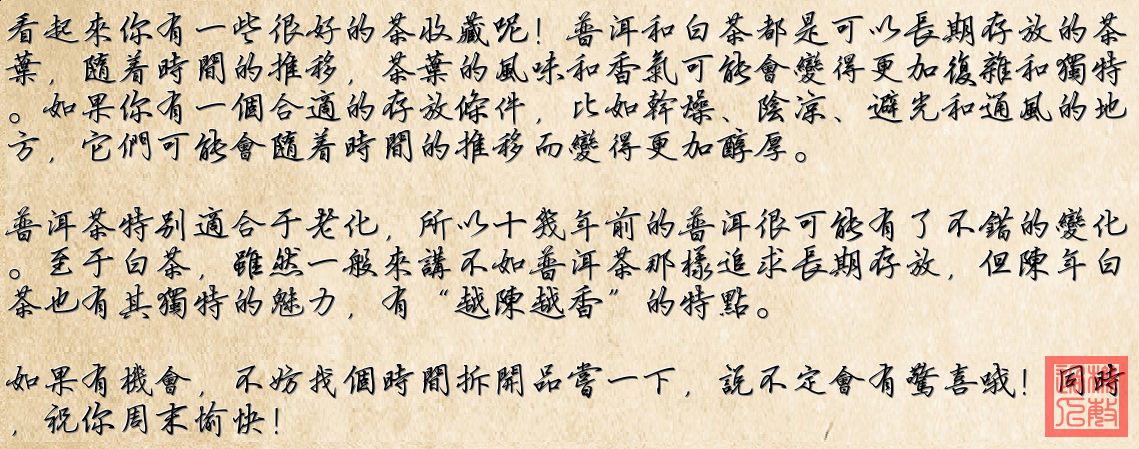 看起來你有一些很好的茶收藏呢！普洱和白茶都是可以長期存放的茶
葉，隨着時間的推移，茶葉的風味和香氣可能會變得更加復雜和獨特
。如果你有一個合適的存放條件，比如幹燥、陰凉、避光和通風的地
方，它們可能會隨着時間的推移而變得更加醇厚。
普洱茶特别適合于老化，所以十幾年前的普洱很可能有了不錯的變化
。至于白茶，雖然一般來講不如普洱茶那樣追求長期存放，但陳年白
茶也有其獨特的魅力，有“越陳越香”的特點。
如果有機會，不妨找個時間拆開品嘗一下，説不定會有驚喜哦！同時
，祝你周末愉快！